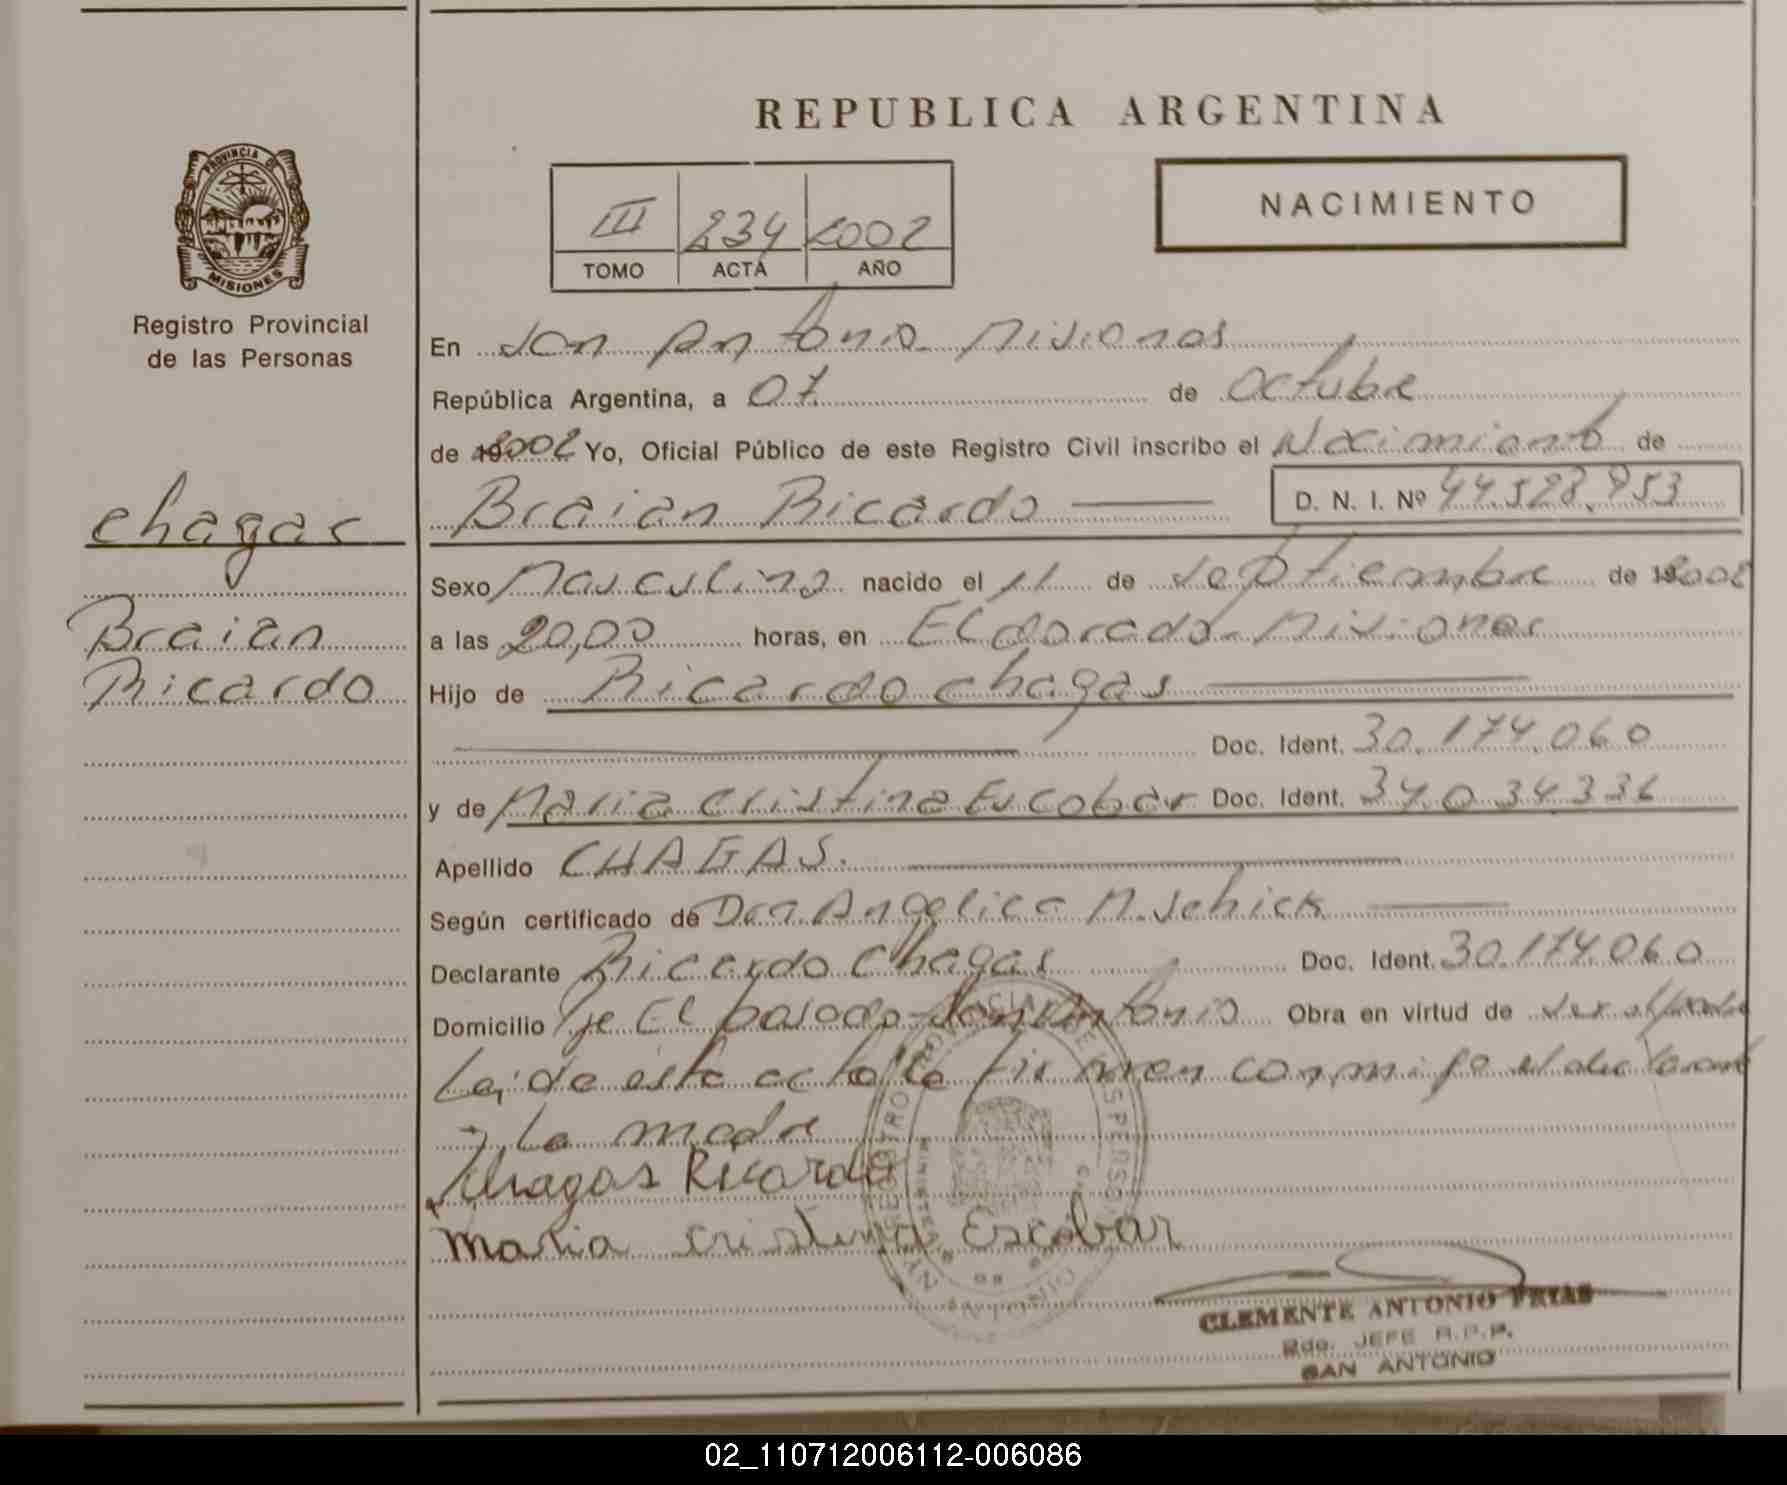 REPUBLICA ARGENTINA
PROVINCIA DE
MISIONES
Registro Provincial
de las Personas
III 234 2002
TOMO ACTA AÑO
NACIMIENTO
En San Antonio Misiones
República Argentina, a 07 de Octubre
de 2002 Yo, Oficial Público de este Registro Civil inscribo el Nacimiento de
chagas
Braian Ricardo D. N. I. Nº 44.528.953
Sexo Masculino nacido el 11 de septiembre de 2002
Braian
a las 20,00 horas, en Eldorado Misiones
Ricardo
Hijo de Ricardo chagas
Doc. Ident. 30.174.060
y de Maria Cristina Escobar Doc. Ident. 34.034.336
Apellido CHAGAS.
Según certificado de Dra Angelica M. Schick
Declarante Ricardo Chagas Doc. Ident. 30.174.060
Domicilio Pje El San Antonio Obra en virtud de ser el padre
Leida esta acta la firman conmigo el declarante
y La madre
Chagas Ricardo
Maria Cristina Escobar
CLEMENTE ANTONIO FRIAS
JEFE R.P.P.
SAN ANTONIO
02_110712006112-006086